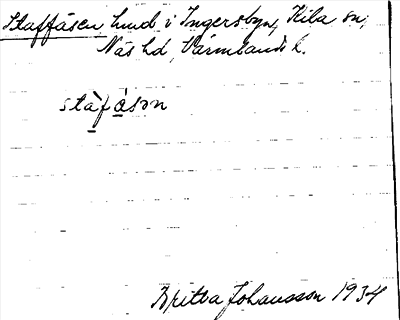 Staffåsen, lund i Ingersbyn, Kila sn,
Näs hd, Värmlands l.
stàfåsən
Britta Johansson 1934